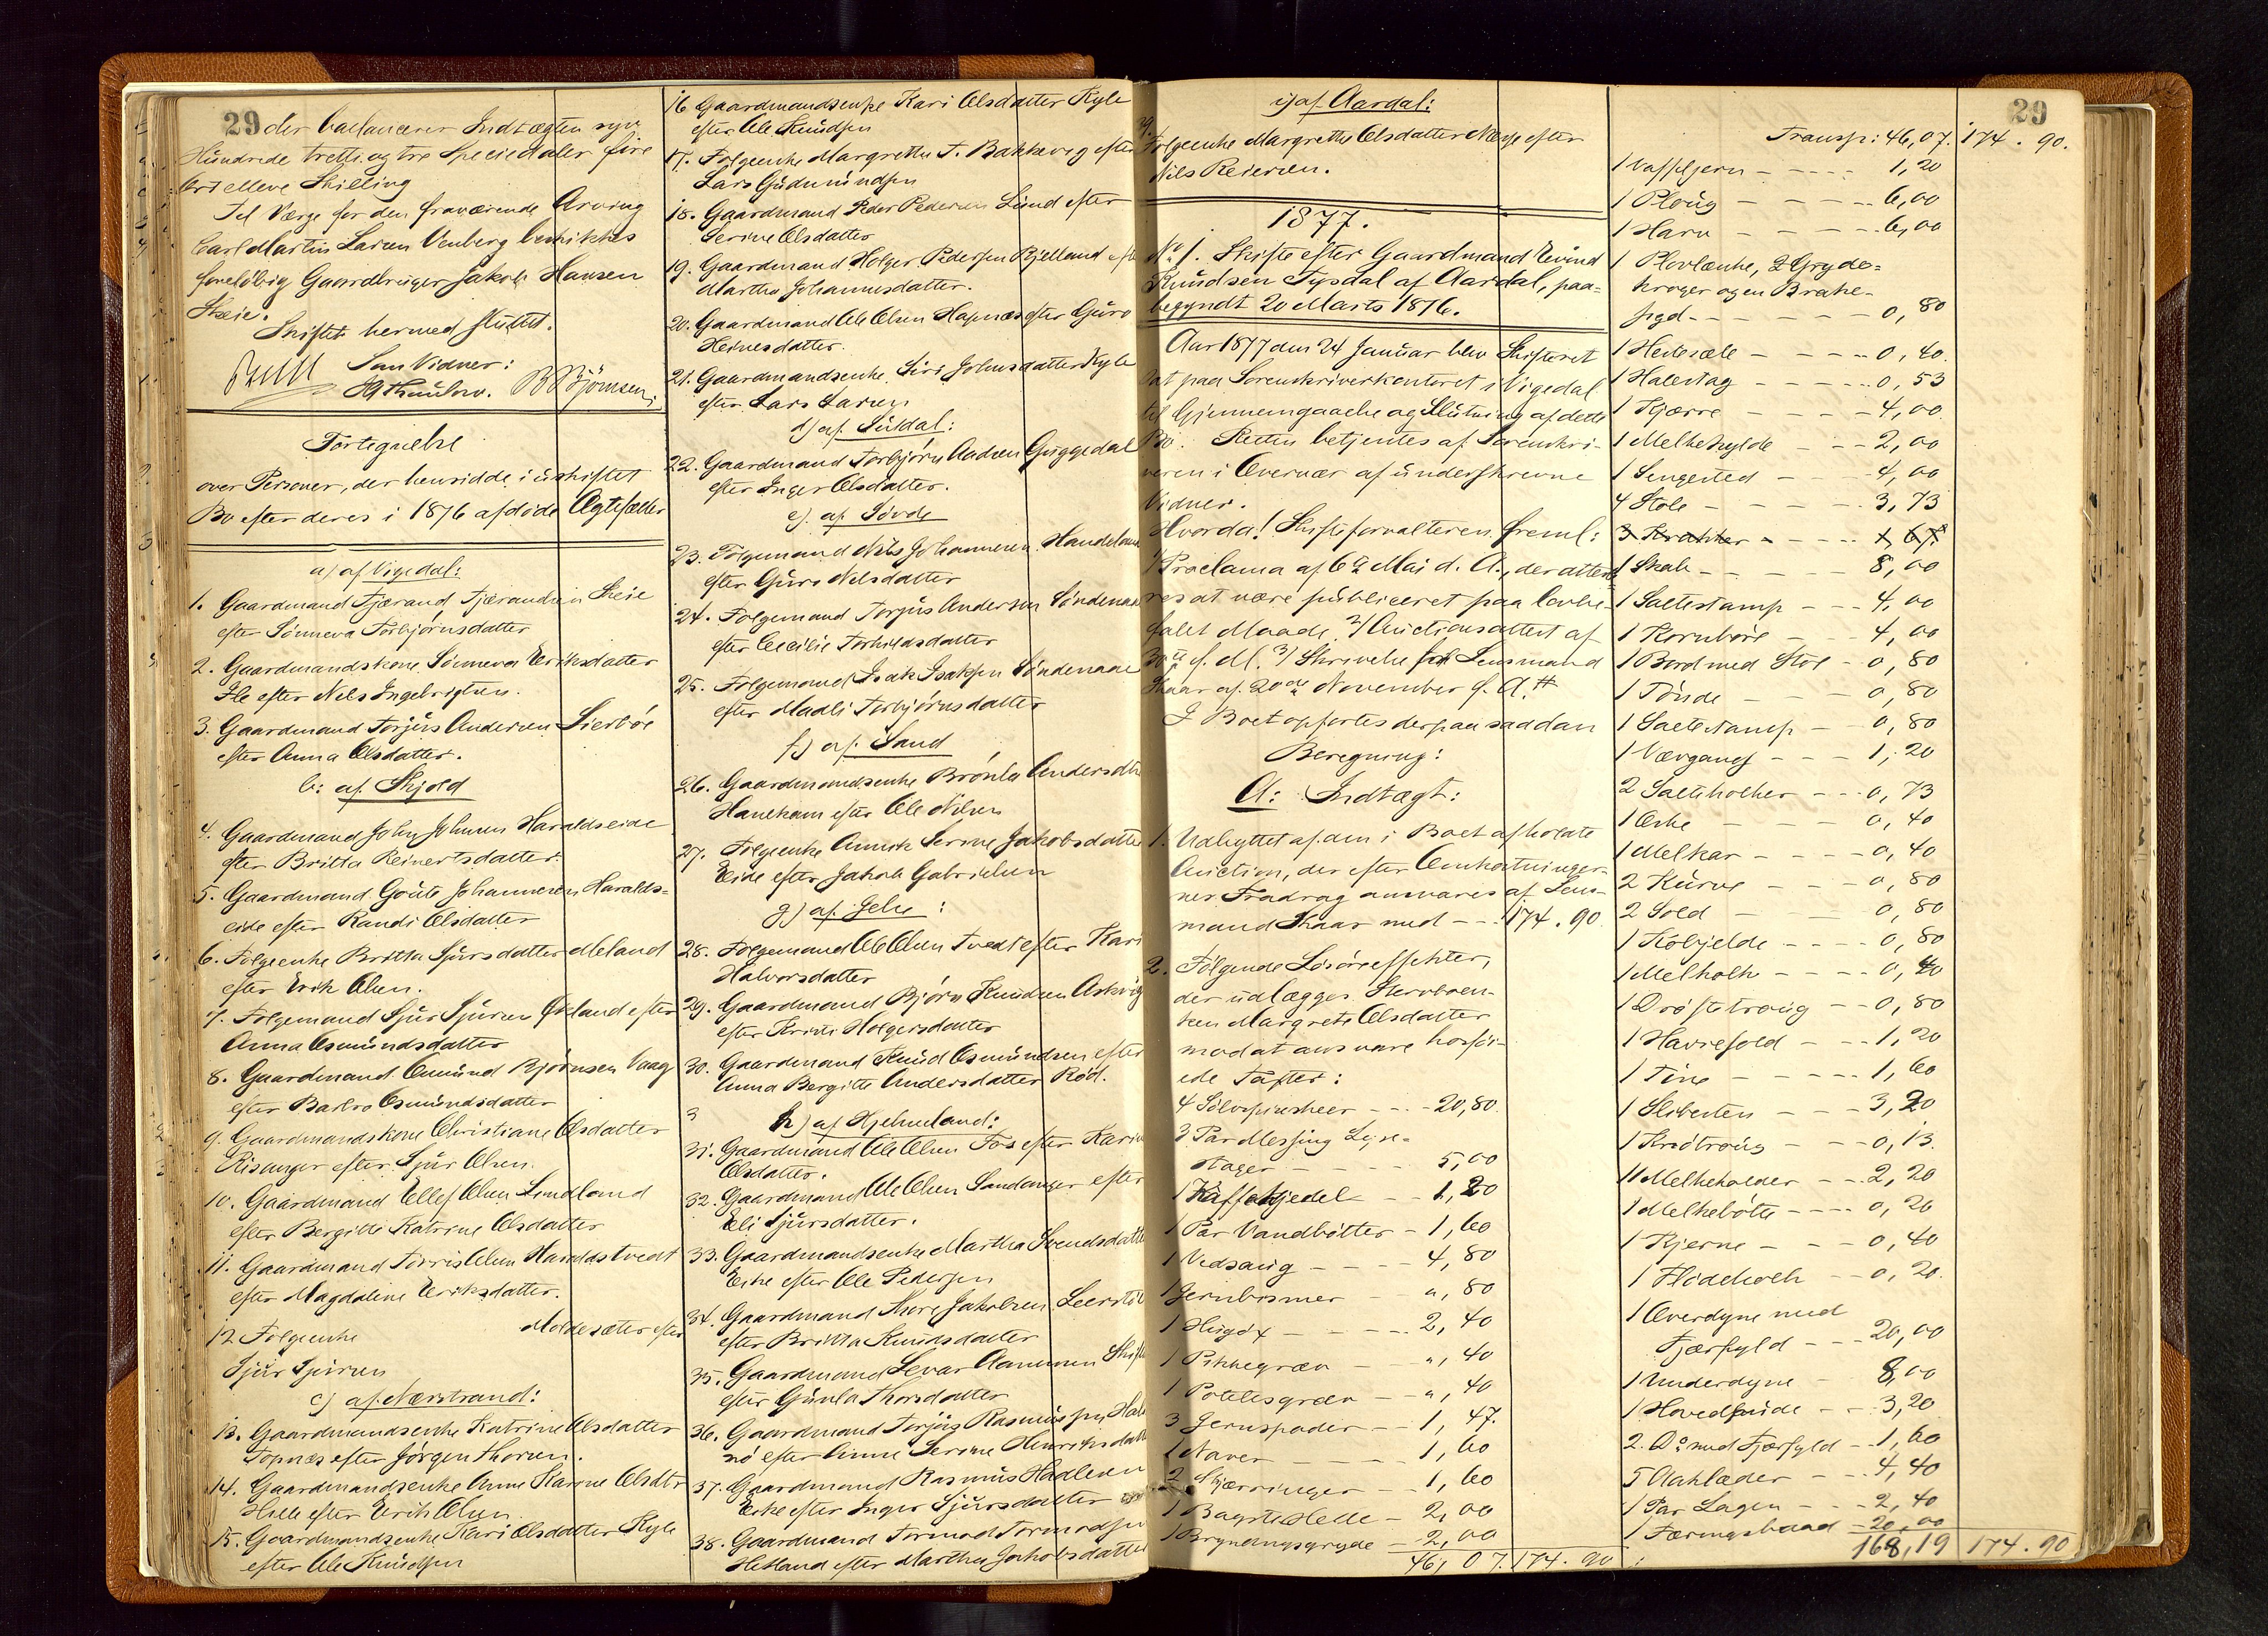 29 der balancerer Indtægten syv
Hundrede tretti og tre Speciedaler fire
Ort elleve Skilling
Til Værge for den fraværende Arving
Carl Martin Larsen Venberg beskikkes
foreløbig Gaardbruger Jakob Hansen
Skeie.
Skiftet hermed sluttet.
Som Vidner:
B Bjørnsen.
Fortegnelse
over Personer, der hensidde i uskiftet
Bo efter deres i 1876 afdøde Ægtefæller
a) af Vigedal:
1. Gaardmand Tjærand Tjærandsen Skeie
efter Sønneva Torbjørnsdatter
2. Gaardmandskone Sønneva Eriksdatter
Ile efter Nels Ingebrigtsen.
3. Gaardmand Torjus Andersen Lierbøe
efter Anna Olsdatter.
b: af Skjold
4. Gaardmand John Johnsen Haraldseide
efter Britta Reinertsdatter.
5. Gaardmand Goute Johannesen Haralds=
eide efter Randi Olsdatter
6. Følgeenke Britta Sjursdatter Meland
efter Erik Olsen.
7. Følgemand Sjur Sjursen Økland efter
Anna Osmundsdatter
8. Gaardmand Osmund Bjørnsen Vaag
efter Barbro Osmundsdatter
9. Gaardmandskone Christiane Olsdatter
Risanger efter Sjur Olsen.
10. Gaardmand Ellef Olsen Lindland
efter Bergitte Katrine Olsdatter
11. Gaardmand Torris Olsen Haraldstvedt
efter Magdaline Eriksdatter.
12 Følgeenke Moldesæter efter
Sjur Sjursen
c) af Nærstrand:
13. Gaardmandsenke Katrine Olsdatter
Topnæs efter Jørgen Thorsen.
14. Gaardmandsenke Anne Karine Olsdtr
Helle efter Erik Olsen
15. Gaardmandsenke Kari Olsdatter Kyle
efter Ole Knudsen
16 Gaardmandsenke Kari Olsdatter Kyle
efter Ole Knudsen
17. Følgeenke Margrethe T. Bakkevig efter
Lars Gudmundsen
18. Gaardmand Peder Pedersen Lund efter
Serine Olsdatter
19. Gaardmand Holger Pedersen Bjelland efter
Martha Johannesdatter.
20. Gaardmand Ole Olsen Hapnæs efter Guro
Heinesdatter.
21. Gaardmandsenke Siri Johnsdatter Kyle
efter Lars Larsen
d) af Suldal:
22. Gaardmand Torbjørn Andsen Guggedal
efter Inger Olsdatter.
e). af Søvde
23. Følgemand Nels Johannesen Handeland
efter Guro Nelsdatter
24. Følgemand Torjus Andersen Søndenaae
efter Cecilie Torkildsdatter
25. Følgemand Isak Isaksen Søndenaae
efter Madli Torbjørnsdatter
f) af Sand
26. Gaardmandsenke Brønla Andersdtr
Hanekam efter Ole Nilsen
27. Følgeenke Annik Serine Jakobsdatter
Eide efter Jakob Gabrielsen
g) af Jelse:
28. Følgemand Ole Olsen Tvedt efter Kari
Halvorsdatter
29. Gaardmand Bjørn Knudsen Askvig
efter Kristi Holgersdatter
30. Gaardmand Knud Osmundsen efter
Anna Bergitte Andersdatter Rød.
h) af Hjelmeland:
31. Gaardmand Ole Olsen Fos efter Kari
Olsdatter.
32. Gaardmand Ole Olsen Sandanger efter
Eli Sjursdatter.
33. Gaardmandsenke Martha Svendsdatter
Eike efter Ole Pedersen
34. Gaardmand Thore Jakobsen Leerstøl
efter Britta Knudsdatter
35. Gaardmand Sevar Aanensen
efter Gunla Thorsdatter
36. Gaardmand Torjus Rasmussen Hal
nø efter Anne Serine Henriksdatter
37. Gaardmand Rasmus Hadlesen
Eike efter Inger Sjursdatter
38. Gaardmand Tormod Tormodsen
Hetland efter Martha Jakobsdatter
i) af Aardal:
39. Følgeenke Margrethe Olsdatter Næsse efter
Nils Reiersen.
1877.
No 1. Skifte efter Gaardmand Eivind
Knudsen Tysdal af Aardal, paa=
begyndt 20 Marts 1876.
Aar 1877 den 24 Januar blev Skifteret
sat paa Sorenskriverkontoret i Vigedal
til Gjennemgaaelse og Slutning af dette
Bo. Retten betjentes af Sorenskri-
veren i Overvær af underskrevne
Vidner.
Hvorda! Skifteforvalteren freml:
1) Proclama af 6te Mai d. A., der attest
res at være publiceret paa lovbe-
falet Maade. 2) Auctionsattest af
30te s. M. 3) Skrivelse fra Lensmand
Skaar af 20de November f. A. #
I Boet opførtes derpaa saadan
Beregning:
A: Indtægt:
1. Udbyttet af den i Boet afholdte
Auction, der efter Omkostninger-
nes Fradrag ansvares af Lens-
mand Skaar med - - 174. 90.
2. Følgende Løsøreffekter,
der udlægges Stervboen-
ken Margrete Olsdatter
mod at ansvare hosføi-
ede Taxter:
4 Sølvspiseskeer - - - 20,80.
3 Par Messing Lyse-
stager - - - - 5,00
1 Kaffekjedel - - 1,20
1 Par Vandbøtter - 1,60
1 Vedsaug - - - - 4,80
1 Jernbismer - - ",80
1 Hugøx - - - - 2,40
1 Pikkegræv - - ",40
1 Potetesgræv - - ",40
3 Jernspader - - 1,47.
1 Naver - - - - 1,60
2 Skjæringer - - 1,60
1 Bagstehelle - 2,00
1 Brygningsgryde - 2,00
46,07. 174. 90
29
Transp: 46,07. 174. 90.
1 Vaffeljern - - - - - 1,20
1 Ploug - - - - - 6,00
1 Harv - - - - - 6,00
1 Plovlænke, 2 Gryde=
kroger og en Brake-
sigd - - - - - - 0,80
1 Hestesæle - - - - 0,40.
1 Halvtag - - - - - 0,53
1 Kjærre - - - - 4,00.
1 Melkehylde - - - 2,00
1 Sengested - - - 4,00
4 Stole - - - - - 3,73
3 Krakker - - - - - 1,67.
1 Skab - - - - - 8,00
1 Saltestamp - - - 4,00
1 Kornbøre - - - 4,00
1 Bord med Stol - 0,80
1 Tønde - - - 0,80
1 Saltestamp - - 0,80
1 Vevgang - - - 1,20
2 Salteholker - - - 0,73
1 Eske - - - - 0,40
1 Melkar - - - - 0,40
2 Kurve - - - 0,80
2 Sold - - - 0,80
1 Kobjelde - - - - 0,80
1 Melholk - - - - 0,40
1 Drøftetroug - - 0,80
1 Havresold - - - 1,20
1 Tine - - - - - 1,60
1 Slibesten - - - 3,20
1 Krødtroug - - - 0,13.
11 Melkeholder - - - 2,20
1 Melkebøtte - - - - 0,20
1 Kjerne - - - 0,40
1 Flødeholk - - 0,20.
1 Overdyne med
Fjærfyld - - - 20,00
1 Underdyne - 8,00
1 Hovedpude - - 3,20
2. Do med Fjærfyld - - 1,60
5 Aaklæder - - - 4,40
1 Par Lagen - - - 2,40
1 Færingsbaad - 20,00
168,19 174. 90